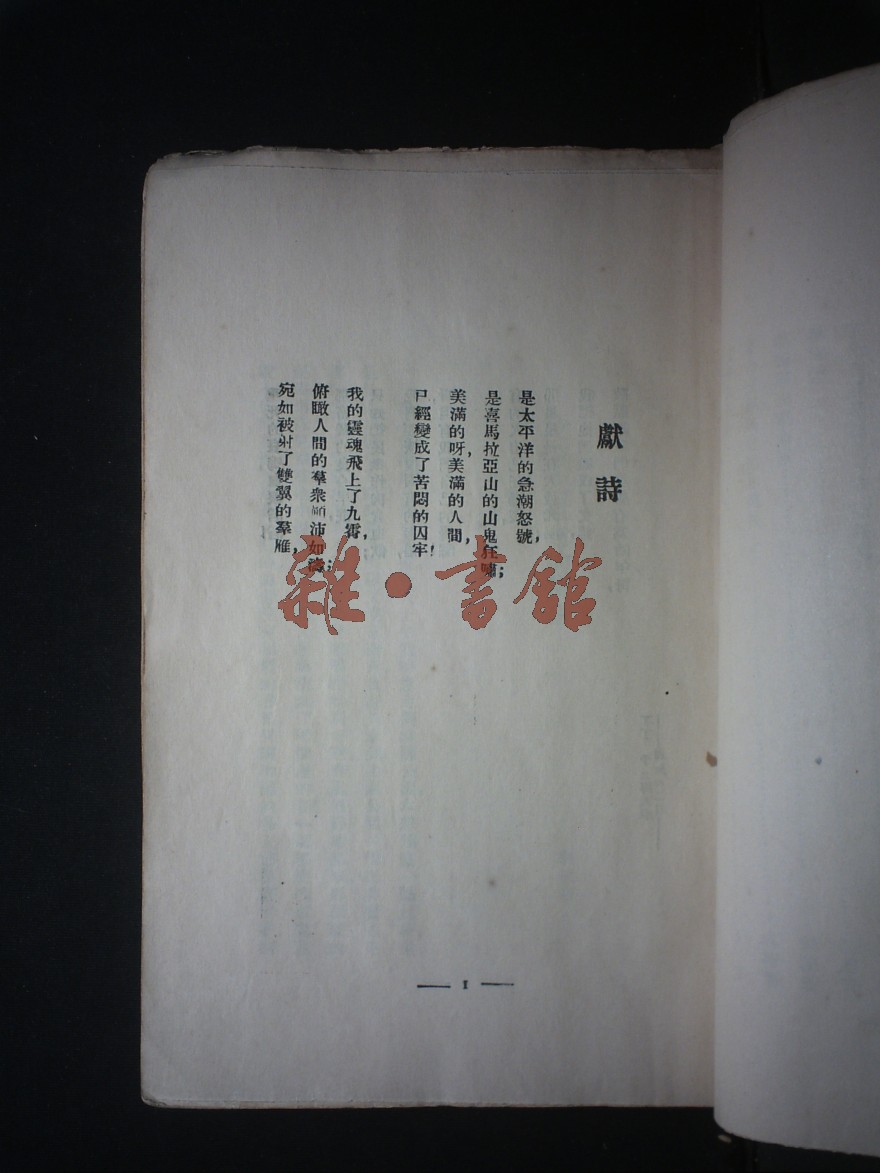 獻詩
是太平洋的急潮怒號，
是喜馬拉亞山的山鬼狂嘯；
美滿的呀，美滿的人間，
已經變成了苦悶的囚牢！
我的靈魂飛上了九霄，
俯瞰人間的羣衆顚沛如濤；
宛如被射了雙翼的羣雁，
雜·書館
— 1 —